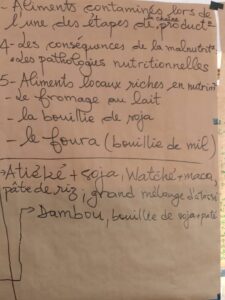 - Aliments contaminés lors de
l'une des étapes de la chaîne product°
4-des conséquences de la malnutrit°
• des pathologies nutritionnelles
5-Aliments locaux riches en nutrim
- le fromage au lait
- la bouillie de soja
- le foura (bouillie de mil)
→ Atiéké + soja, Watché + maca,
pâte de riz; grand mélange
Dambou, bouillie de soja + pate